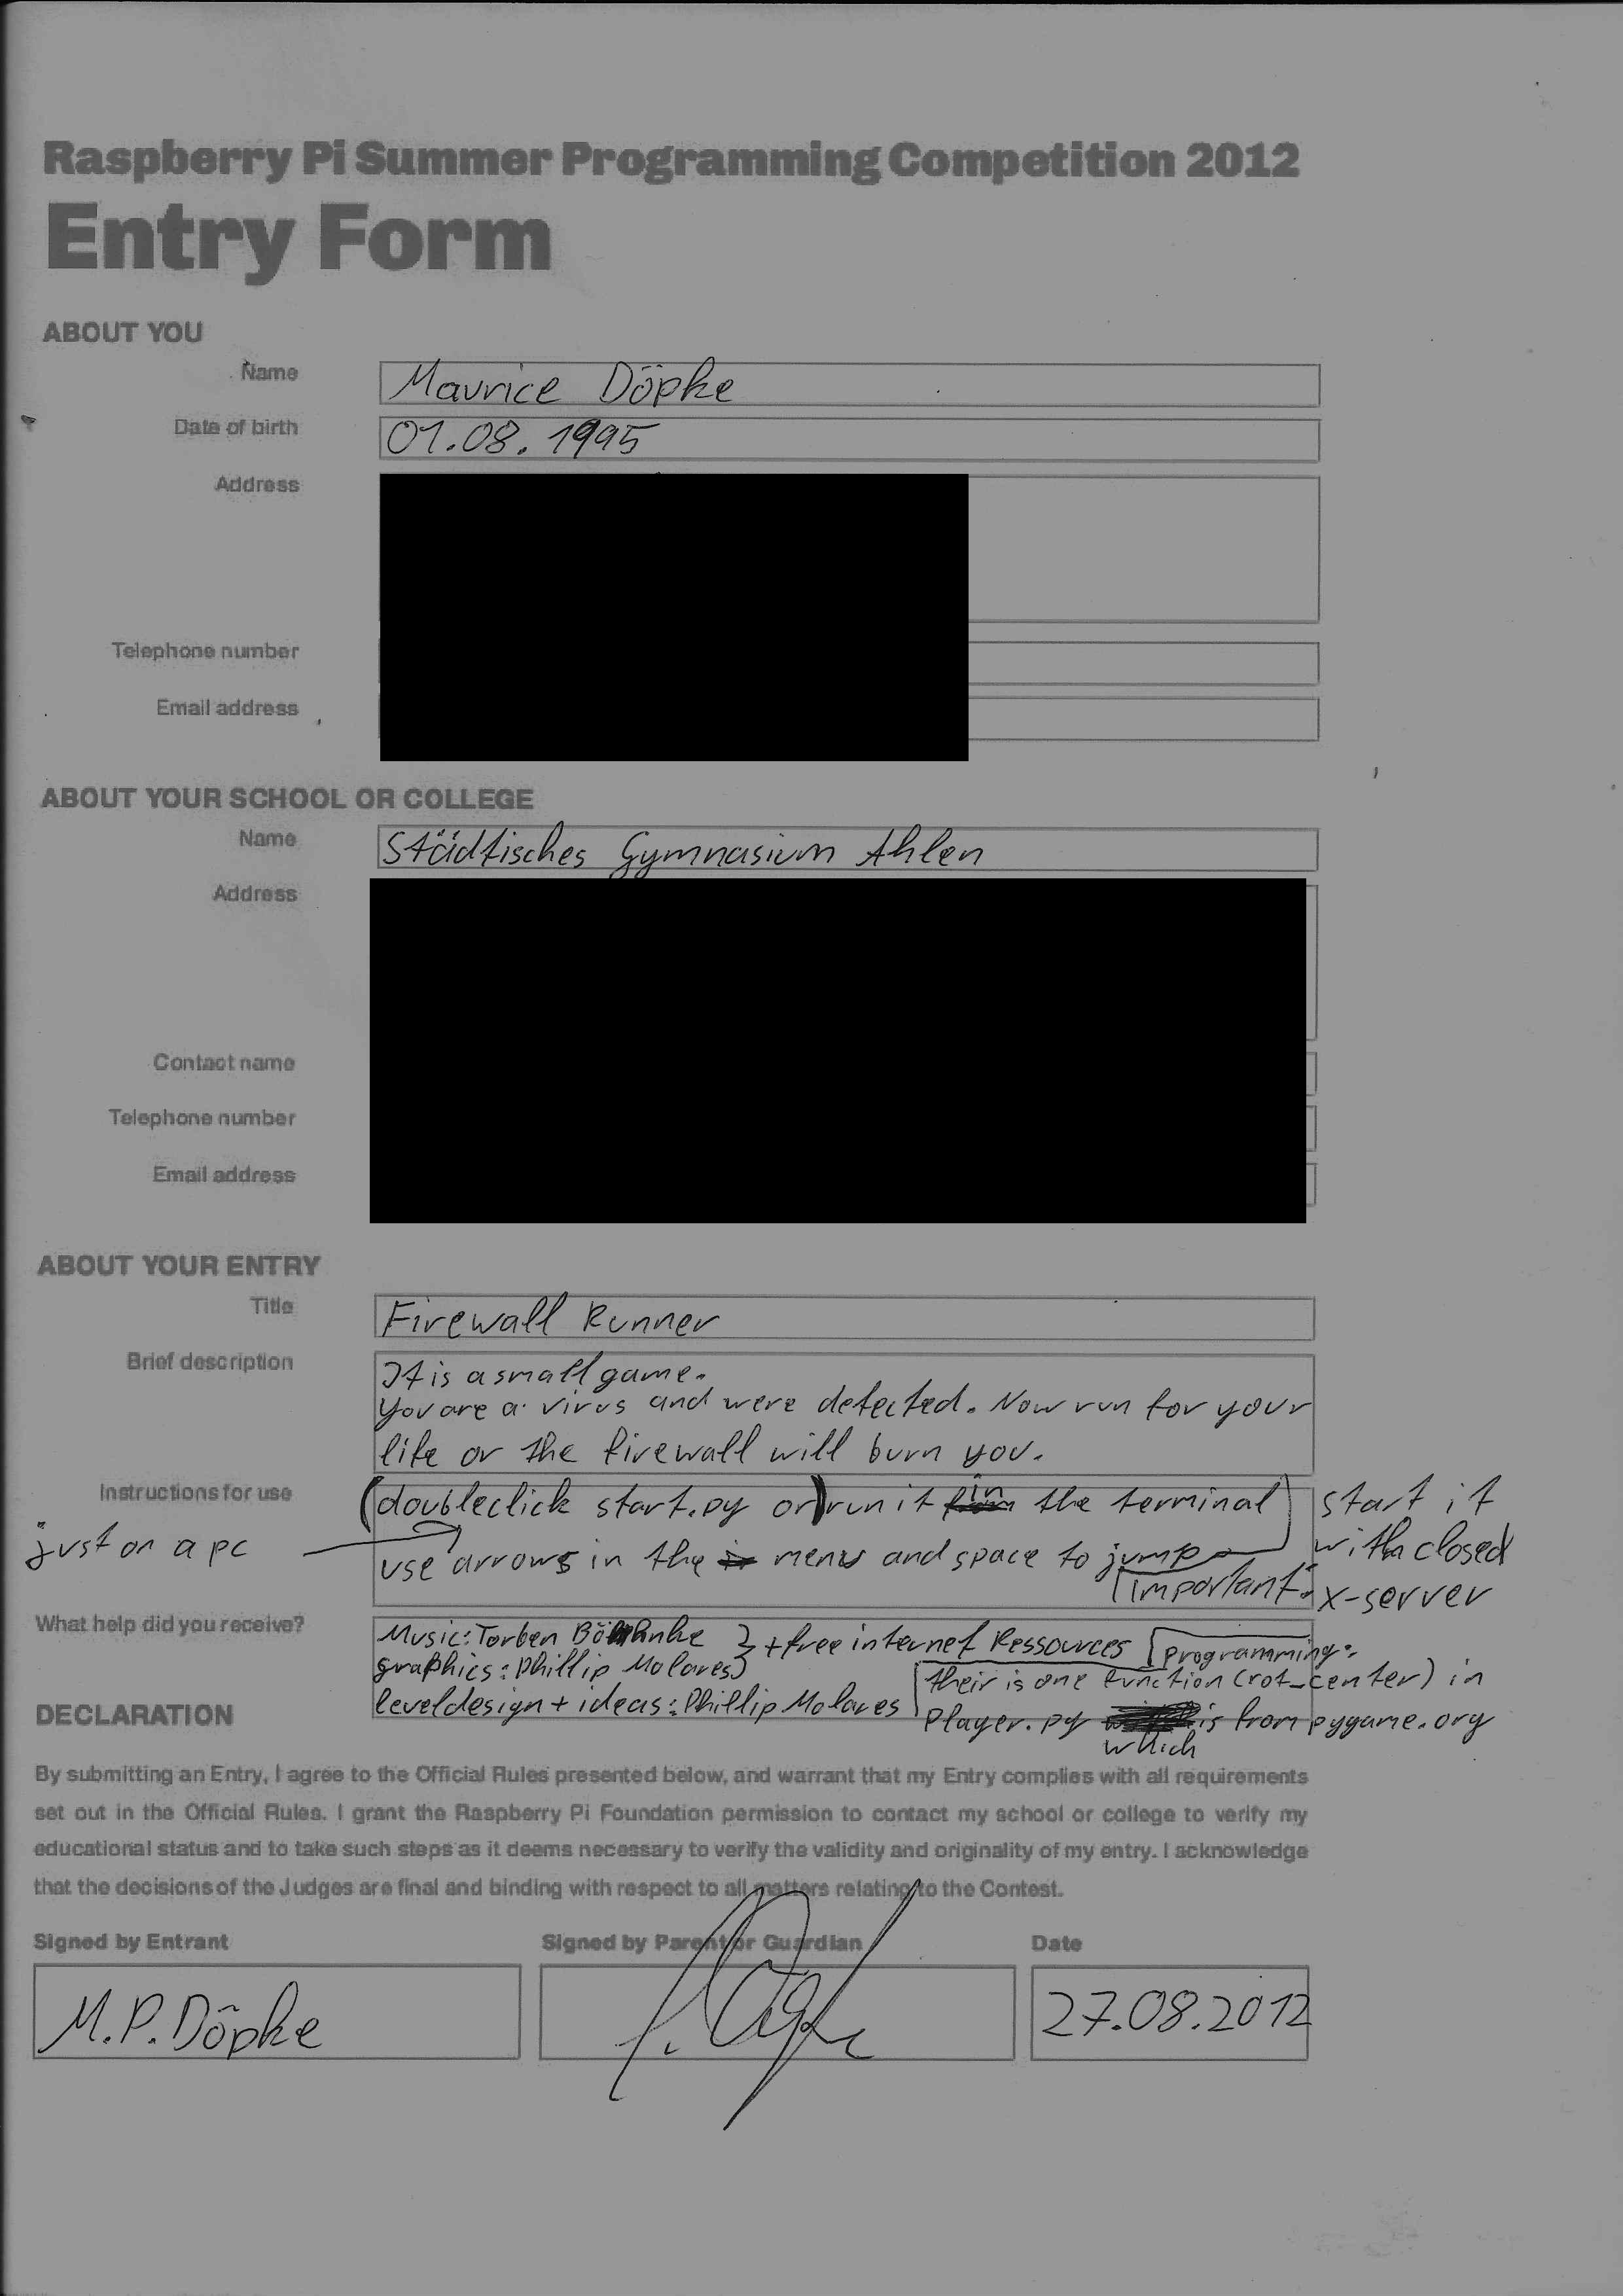 Raspberry Pi Summer Programming Competition 2012
Entry Form
ABOUT YOU
Name Maurice Döpke
Date of birth 01.08.1995
Address
Telephone number
Email address
ABOUT YOUR SCHOOL OR COLLEGE
Name Städtisches Gymnasium Ahlen
Address
Contact name
Telephone number
Email address
ABOUT YOUR ENTRY
Title Firewall Runner
Brief description It is a small game.
You are a virus and were detected. Now run for your
life or the firewall will burn you.
Instructions for use (doubleclick start.py or) run it in the terminal
just on a pc
use arrows in the menu and space to jump
important: start it
with closed
x-server
What help did you receive? Music: Torben
graphics: Phillip Molares } + free internet Ressources
leveldesign + ideas: Phillip Molares
Programming:
their is one function (rot_center) in
Player.py which is from pygame.org
DECLARATION
By submitting an Entry, I agree to the Official Rules presented below, and warrant that my Entry complies with all requirements
set out in the Official Rules. I grant the Raspberry Pi Foundation permission to contact my school or college to verify my
educational status and to take such steps as it deems necessary to verify the validity and originality of my entry. I acknowledge
that the decisions of the Judges are final and binding with respect to all matters relating to the Contest.
Signed by Entrant Signed by Parent or Guardian Date
M.P.Döpke 27.08.2012